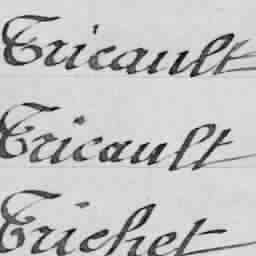 Tricault
Tricault
Trichet